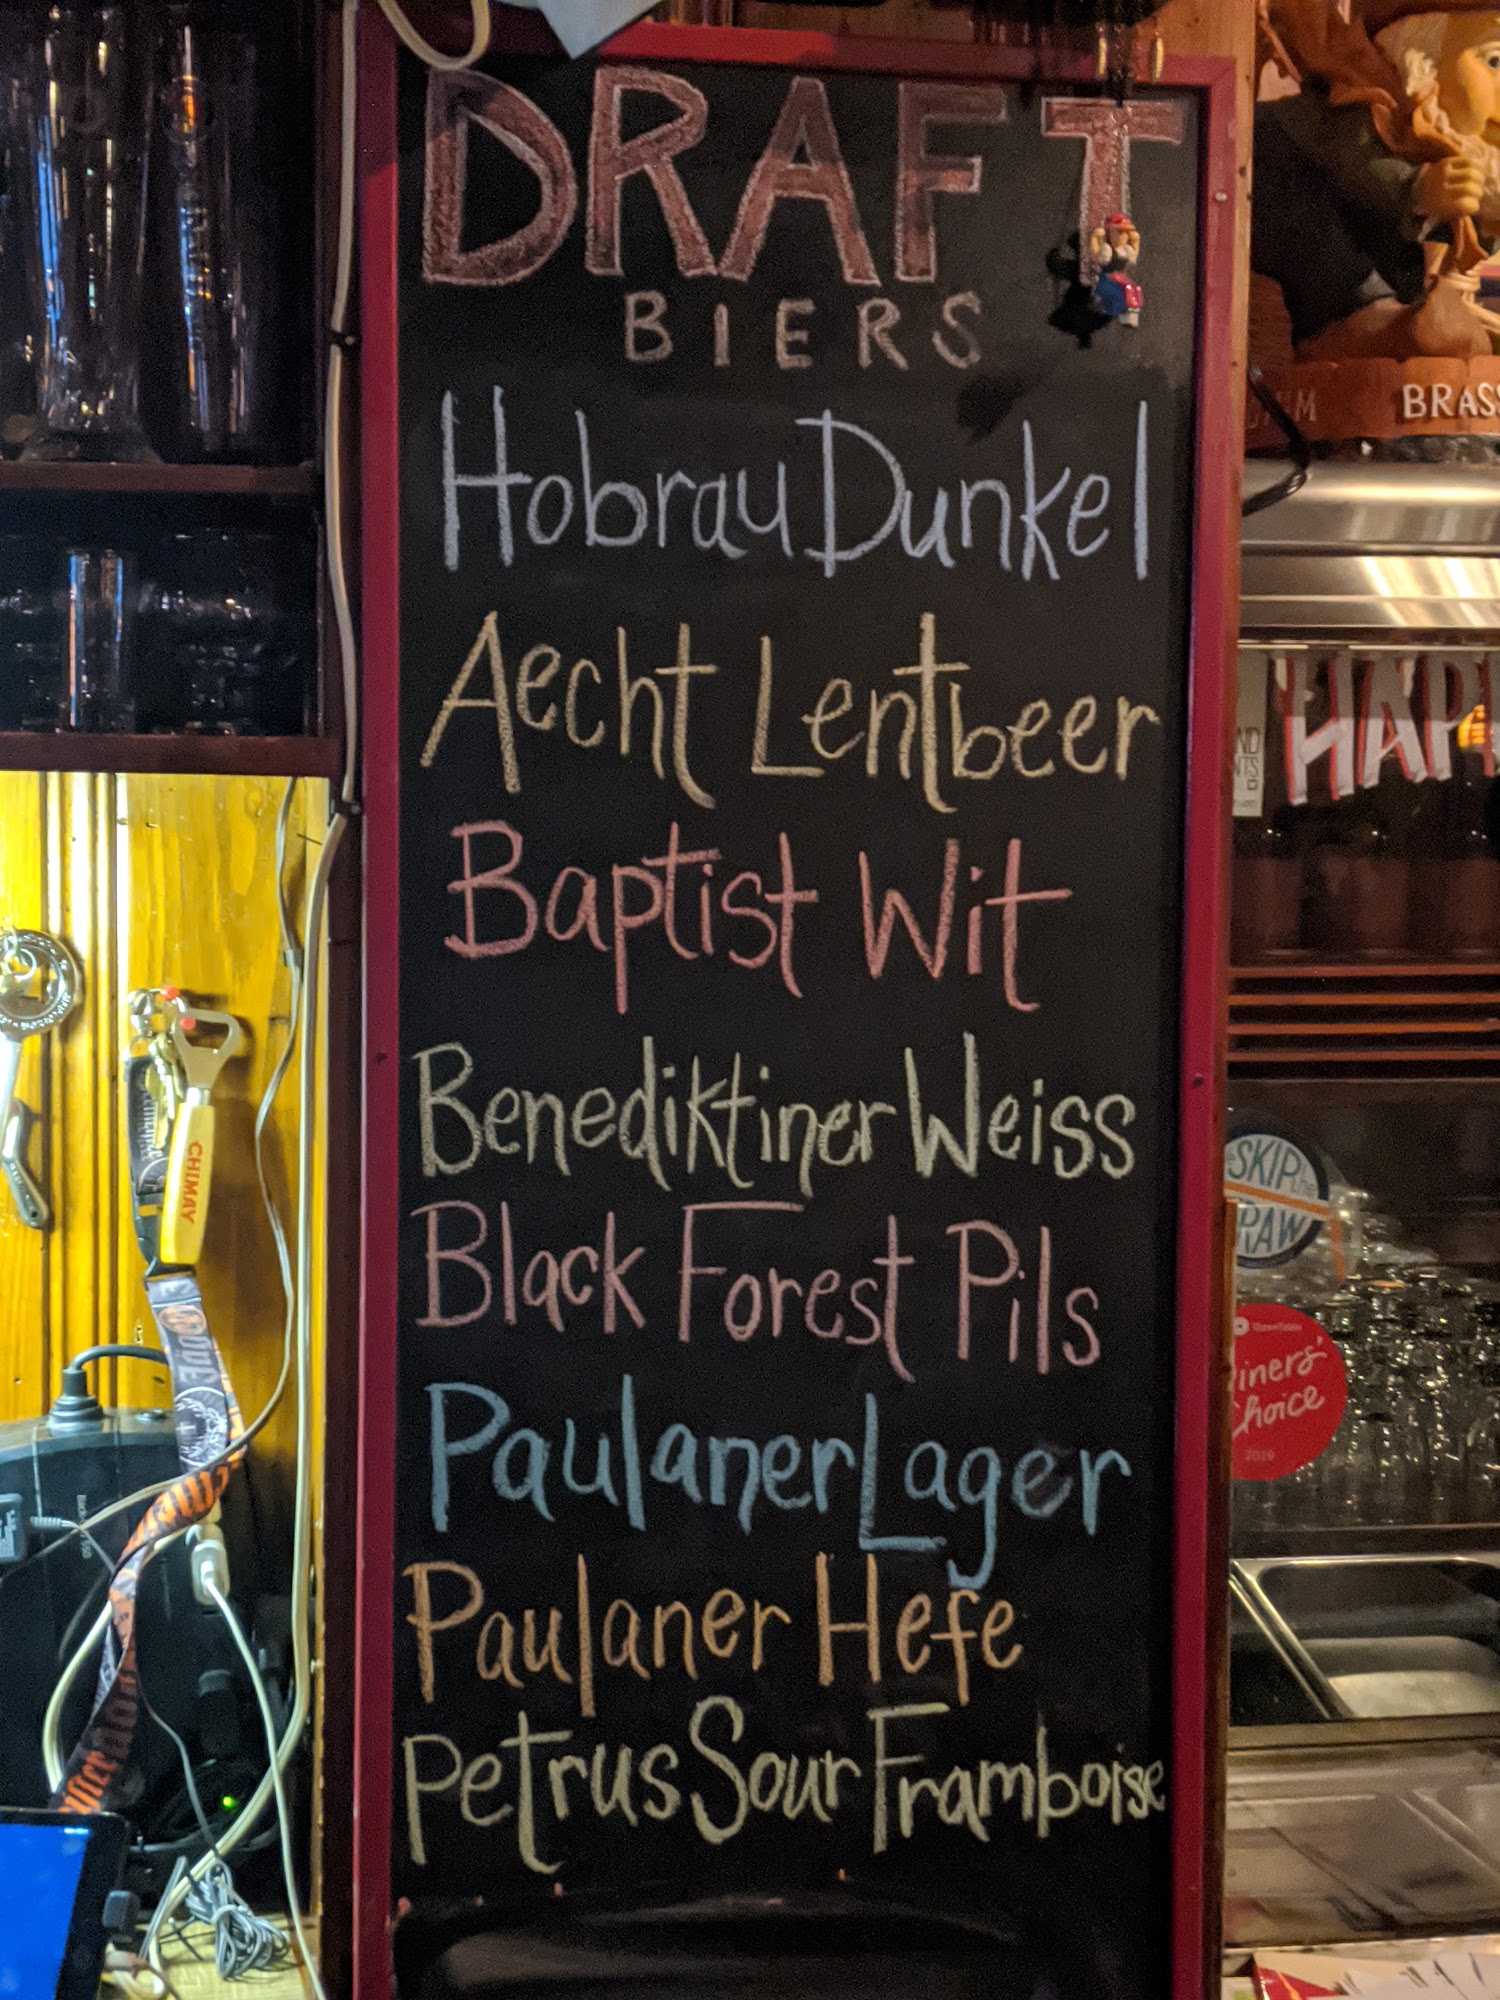 DRAFT
BIERS
Hobrau Dunkel
Aecht Lentbeer
Baptist Wit
Benediktiner Weiss
Black Forest Pils
Paulaner Lager
Paulaner Hefe
Petrus Sour Framboise
BRASS
HAPP
CHIMAY
SKIP the
RAW
iners'
hoice
2019